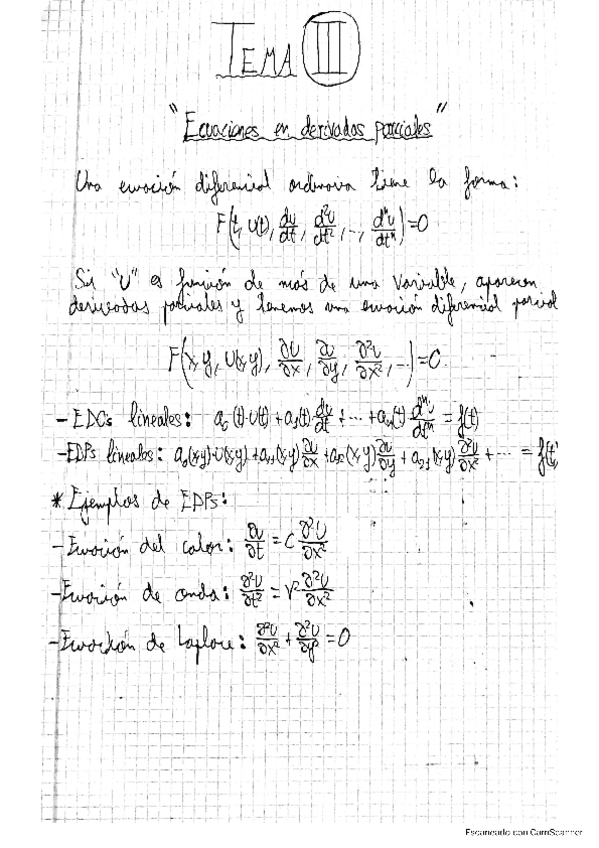 TEMA III
"Ecuaciones en derivadas parciales"
Una ecuación diferencial ordinaria tiene la forma:
F(t, u(t), du/dt, d²u/dt², ..., dⁿu/dtⁿ)=0
Si "U" es función de más de una variable, aparecen
derivadas parciales y tenemos una ecuación diferencial parcial
F(x, y, u(x,y), ∂u/∂x, ∂u/∂y, ∂²u/∂x², ...)=0
- EDOs lineales: a₀(t)·u(t)+a₁(t)·du/dt+...+aₙ(t)dⁿu/dtⁿ = f(t)
- EDPs lineales: a₀(x,y)·u(x,y)+a₁₁(x,y)∂u/∂x+a₁₂(x,y)∂u/∂y+a₂₁(x,y)∂²u/∂x²+... = f(t,
* Ejemplos de EDPs:
- Ecuación del calor: ∂u/∂t = C ∂²u/∂x²
- Ecuación de onda: ∂²u/∂t² = V² ∂²u/∂x²
- Ecuación de Laplace: ∂²u/∂x² + ∂²u/∂y² = 0
Escaneado con CamScanner